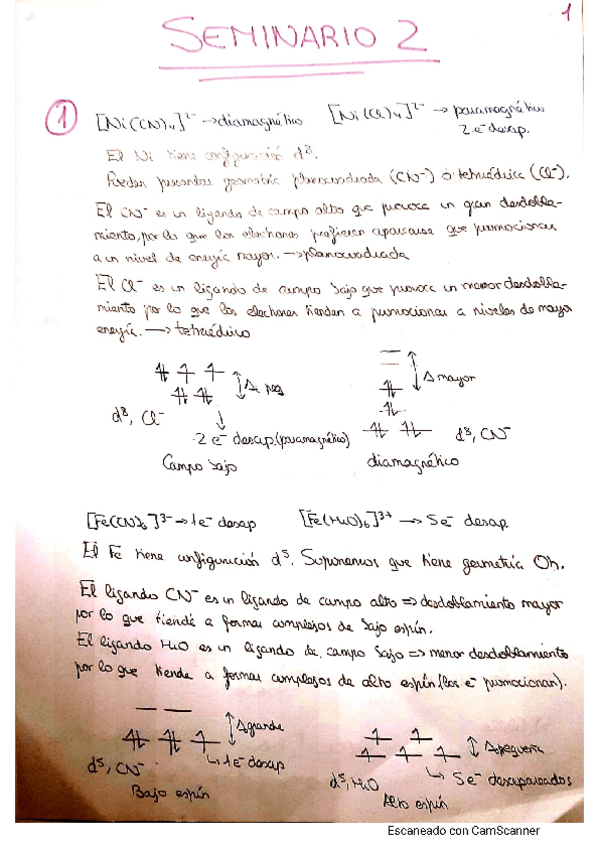 1
SEMINARIO 2
① [Ni(CN)₄]²⁻ → diamagnético [Ni(Cl)₄]²⁻ → paramagnético
2 e⁻ desap.
El Ni tiene configuración d⁸.
Pueden presentar geometría planocuadrada (CN⁻) ó tetraédrica (Cl⁻).
El CN⁻ es un ligando de campo alto que provoca un gran desdobla-
miento, por lo que los electrones prefieren aparearse que promocionar
a un nivel de energía mayor. → planocuadrada
El Cl⁻ es un ligando de campo bajo que provoca un menor desdobla-
miento por lo que los electrones tienden a promocionar a niveles de mayor
energía. → tetraédrico
Δ peq
Δ mayor
d⁸, Cl⁻
2 e⁻ desap. (paramagnético)
d⁸, CN⁻
Campo bajo
diamagnético
[Fe(CN)₆]³⁻ → 1e⁻ desap [Fe(H₂O)₆]³⁺ → 5e⁻ desap.
El Fe tiene configuración d⁵. Suponemos que tiene geometría Oh.
El ligando CN⁻ es un ligando de campo alto ⇒ desdoblamiento mayor
por lo que tiende a formar complejos de bajo espín.
El ligando H₂O es un ligando de campo bajo ⇒ menor desdoblamiento
por lo que tiende a formar complejos de alto espín (los e⁻ promocionan).
Δ grande
Δ pequeña
↳ 1e⁻ desap
d⁵, CN⁻
↳ 5e⁻ desapareados
d⁵, H₂O
Bajo espín
Alto espín
Escaneado con CamScanner